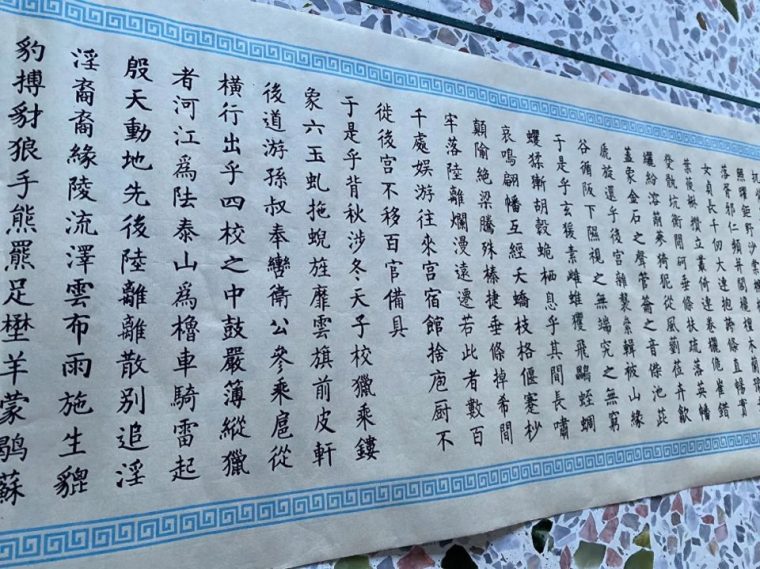 照曜鉅野沙棠櫟
落胥邪仁頻并閭欃檀木蘭豫章
女貞長千仞大連抱誇條直暢實
葉葰楙攢立叢倚連卷欐佹崔錯
癹骫坑衡閜砢垂條扶疏落英幡
纚紛溶萷蔘猗狔從風藰莅卉歙
蓋象金石之聲管籥之音傑池茈
虒旋還乎後宮雜襲絫輯被山緣
谷循阪下隰視之無端究之無窮
于是乎玄猨素雌蜼玃飛鸓蛭蜩
蠼猱獑胡豰蛫栖息乎其間長嘯
哀鳴翩幡互經夭蟜枝格偃蹇杪
顛隃絶梁騰殊榛捷垂條掉希間
牢落陸離爛漫遠遷若此者數百
千處娱游往來宮宿館捨庖厨不
徙後宮不移百官備具
于是乎背秋涉冬天子校獵乘鏤
象六玉虬拖蜺旌靡雲旗前皮軒
後道游孫叔奉轡衛公參乘扈從
橫行出乎四校之中鼓嚴簿縱獵
者河江爲阹泰山爲櫓車騎雷起
殷天動地先後陸離離散别追淫
淫裔裔緣陵流澤雲布雨施生貔
豹搏豺狼手熊羆足壄羊蒙鶡蘇